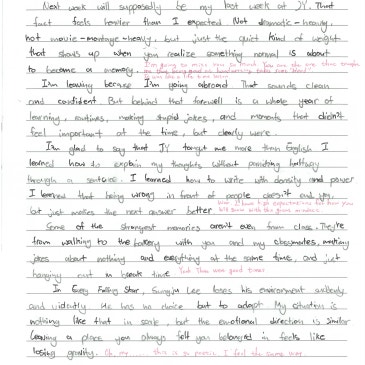 Next week will supposedly be my last week at JY. That
fact feels heavier than I expected. Not dramatic-heavy,
not movie-montage-heavy, but just the quiet kind of weight
that shows up when you realize something normal is about
to become a memory.
I'm leaving because I'm going abroad. That sounds clean
and confident. But behind that farewell is a whole year of
learning, routines, making stupid jokes, and moments that didn't
feel important at the time, but clearly were.
I'm glad to say that JY taught me more than English. I
learned how to explain my thoughts without panicking halfway
through a sentence. I learned how to write with density and power
I learned that being wrong in front of people doesn't end you,
but just makes the next answer better
Some of the strangest memories aren't even from class. They're
from walking to the bakery with you and my classmates, making
jokes about nothing and everything at the same time, and just
hanging out in break time. Yeah those are good times
In Every Falling Star, Sungju Lee loses his environment suddenly
and violently. He has no choice but to adapt. My situation is
nothing like that in scale, but the emotional direction is similar
Leaving a place you always felt you belonged in feels like
losing gravity. Oh, my this is so poetic I feel the same way.